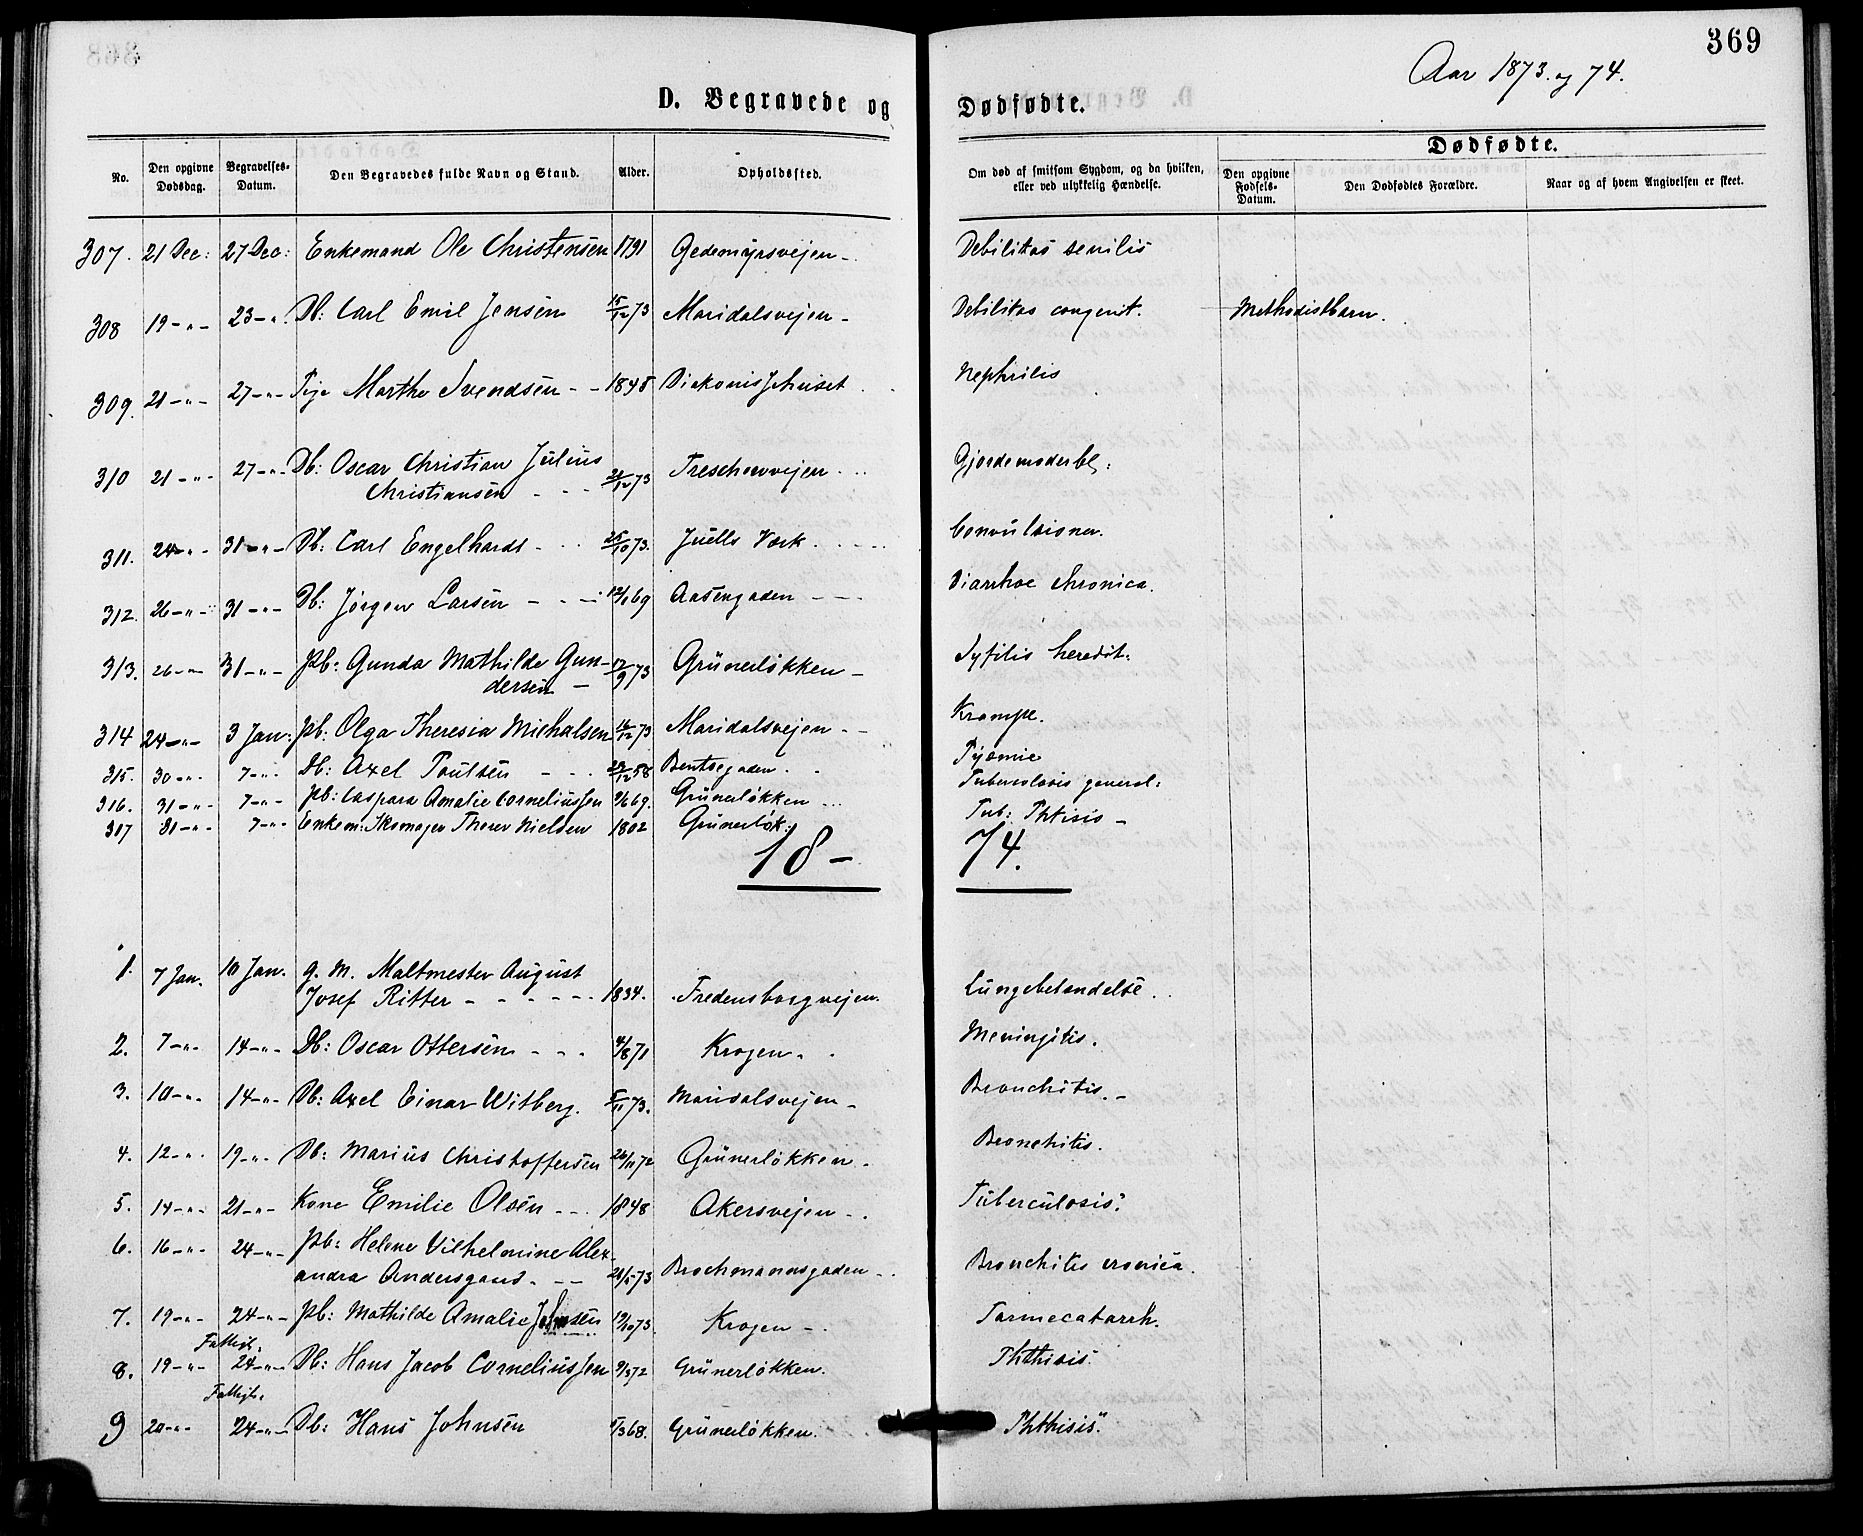 369
Aar 1873. og 74.
D. Begravede og Dødfødte.
No.
Den opgivne Dødsdag.
Begravelses-Datum.
Den Begravedes fulde Navn og Stand.
Alder.
Opholdssted.
Om død af smitsom Sygdom, og da hvilken, eller ved ulykkelig Hændelse.
Dødfødte.
Den opgivne Fødsels-Datum.
Den Dødfødtes Forældre.
Naar og af hvem Angivelsen er skeet.
307. 21 Dec: 27 Dec: Enkemand Ole Christensen 1791 Gedemyrsvejen - Debilitas senilis
308 19 - " - 23 - " . Db: Carl Emil Jensen 15/12 73 Maridalsvejen - Debilitas congenit. Methodistbarn.
309. 21 - " - 27 - " - Pige Marthe Svendsen - - 1845 Diakonissehuset . Nephritis
310 21 - " - 27 - " - Db: Oscar Christian Julius
Christiansen - - - 21/12 73 Treschowvejen . . . Gjordemoderbl:
311. 24 - " - 31 - " - Db: Carl Engelhardt - . . 25/10 73. Juells Værk . . - . . Convulsioner.
312. 26 - " - 31 - " - Db: Jørgen Larsen - - . - 12/1 69 Aasengaden - - - Diarrhoe chronica.
313. 26 - " - 31 - " - Pb: Gunda Mathilde Gun-
dersen - 17/9 73 Grünerløkken - Syfilis heredit:
314 24 - " - 3 Jan: Pb: Olga Theresia Michalsen 16/12 73 Maridalsvejen - - Krampe.
315. 30 - " - 7 - " - Db: Axel Poulsen - - . 23/12 58 Bentsegaden . . Pyæmie
316. 31 - " - 7 - " - Pb: Caspara Amalie Corneliussen 9/6 69. Grünerløkken . . . Tuberculosis general:
317 31 - " - 7 - " - Enkem: Skomager Thorer Nielsen 1802 Grünerløk: Tub: Phtisis -
18 - 74.
1. 7 Jan. 10 Jan. g. M. Maltmester August
Josef Ritter - - - - - - 1834. Fredensborgveien. Lungebetændelse . .
2. 7 - " - 14 - " - Db: Oscar Ottersen - - - 4/8 71 Krogen - . Meningitis.
3. 10 - " - 14 - " - Db: Axel Einar Witberg. 5/11 73. Maridalsvejen - Bronchitis. -
4. 12 - " . 19 - " - Db: Marius Christoffersen 20/11 72 Grünerløkken . Bronchitis.
5. 14 - " - 21 - " - Kone Emilie Olsen - - . 1848 Akersvejen - . Tuberculosis.
6. 16 - " - 24 - " - Pb: Helene Vilhelmine Alex-
andra Andersgaard. - - 73 Brochmannsgaden - . Bronchitis cronica.
7. 19 - " - 24 - " - Pb: Mathilde Amalie Johnsen 19/10 73. Krogen - . Tarmecatarrh.
Fattigl.
8. 19 - " - 24 - " - Db: Hans Jacob Corneliussen 9/3 72 Grünerløkken. Phthisis.
Fattigl.
9 20 - " - 24 - " - Db: Hans Johnsen 5/3 68. Grünerløkken. Phthisis"